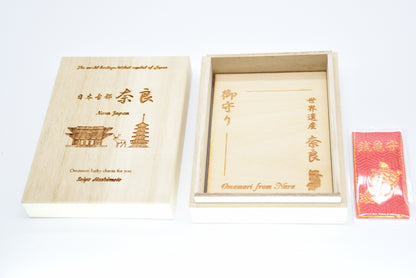 The world heritage/oldest capital of Japan
日本古都 奈良
Nara Japan
Omamori lucky charm for you
Seigo Hashimoto
御守り
世界遺産 奈良
Omamori from Nara